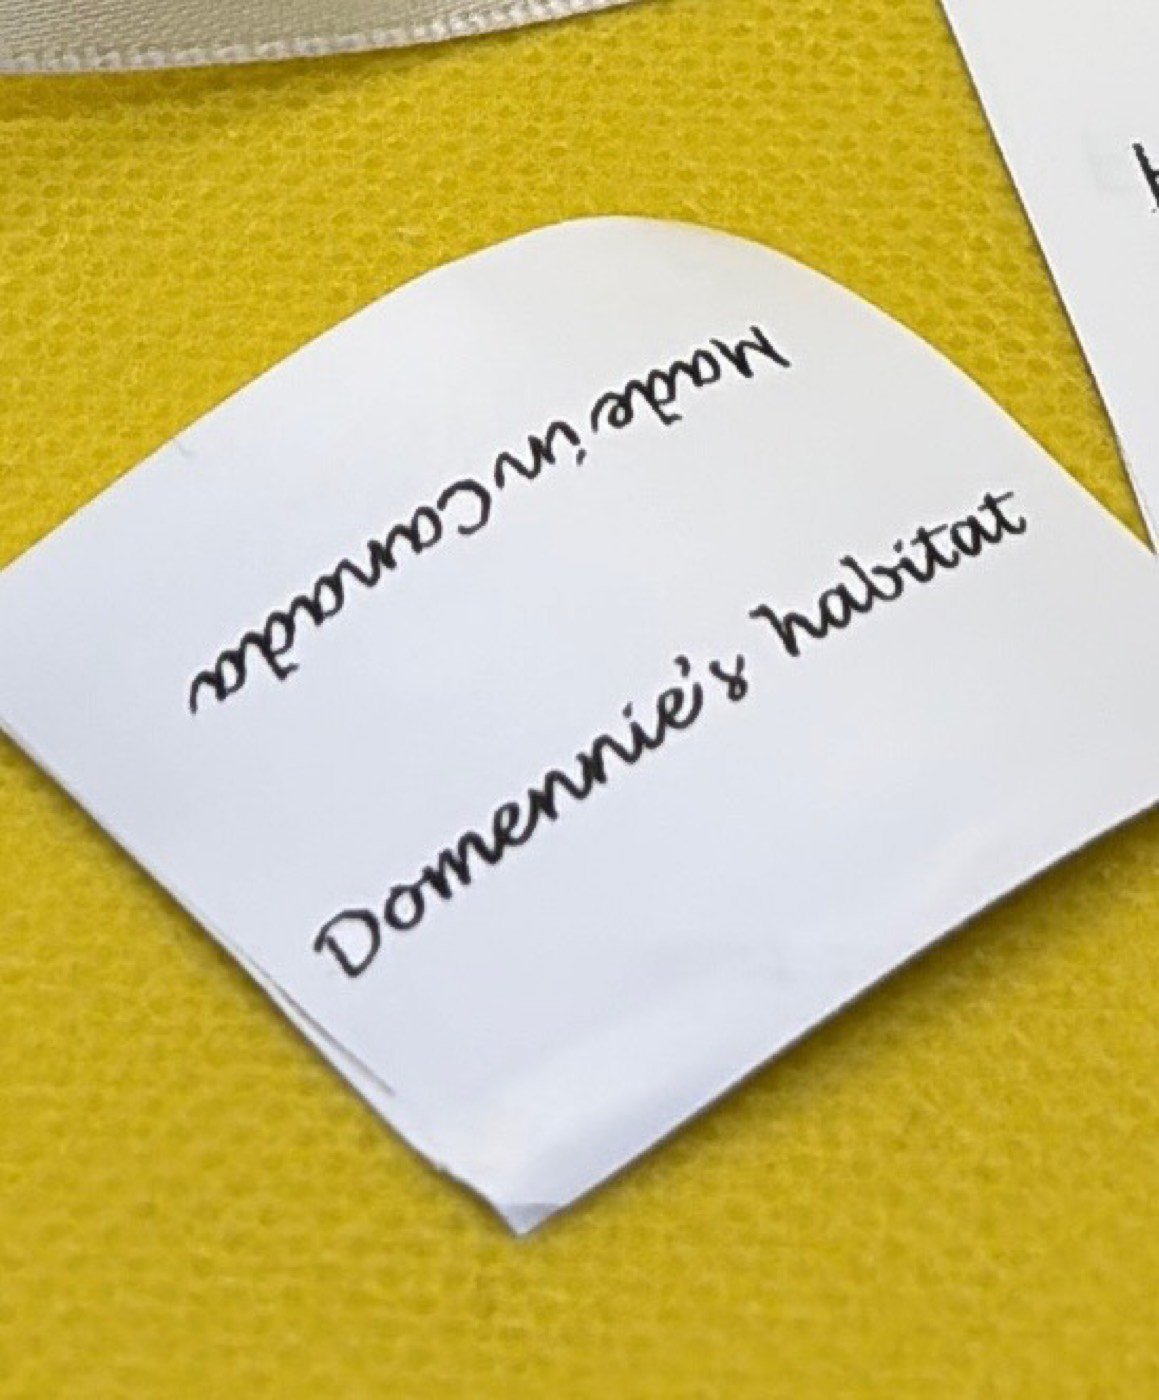 Made in Canada
Domennie's habitat